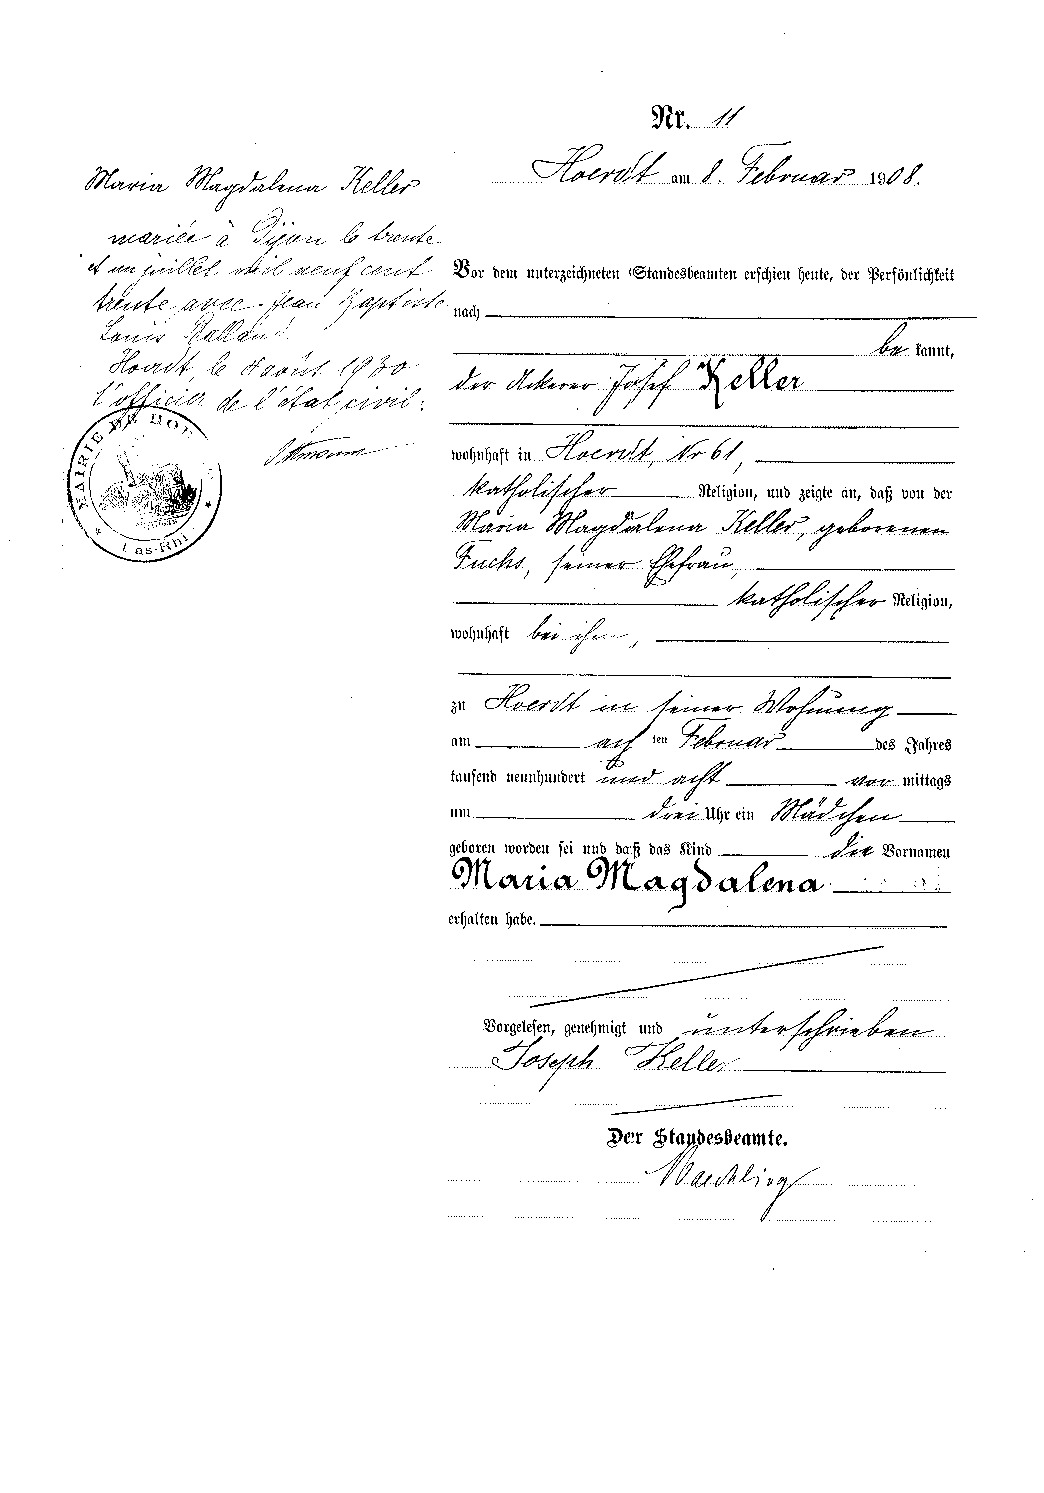 Nr. 11
Hoerdt am 8. Februar 1908.
Maria Magdalena Keller
mariée à Dijon le trente
et un juillet mil neuf cent
trente avec Jean Baptiste
Louis
Hoerdt le août 1930
l'officier de l'état civil:
MAIRIE DE HOE
Bas-Rhi
Vor dem unterzeichneten Standesbeamten erschien heute, der Persönlichkeit
nach
be kannt,
der Ackerer Josef Keller
wohnhaft in Hoerdt, Nr 61,
katholischer Religion, und zeigte an, daß von der
Maria Magdalena Keller, geborenen
Fuchs, seiner Ehefrau,
katholischer Religion,
wohnhaft bei ihm,
zu Hoerdt in seiner Wohnung
am ach ten Februar des Jahres
tausend neunhundert und acht vor mittags
um drei Uhr ein Mädchen
geboren worden sei und daß das Kind die Vornamen
Maria Magdalena
erhalten habe.
Vorgelesen, genehmigt und unterschrieben
Joseph Keller
Der Standesbeamte.